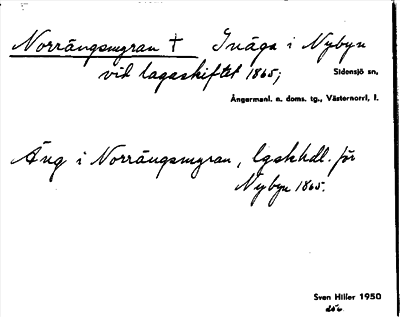 Norrängsmyran † Inäga i Nybyn
vid lagaskiftet 1865;
Sidensjö sn,
Ångermanl. n. doms. tg., Västernorrl, l.
Äng i Norrängsmyran, lgskhdl. för
Nybyn 1865.
Sven Hiller 1950